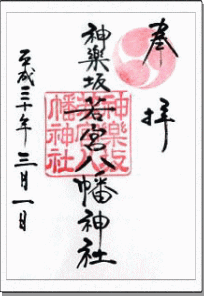 奉拝
神楽坂若宮八幡神社
神楽坂
若宮八
幡神社
平成三十年三月一日